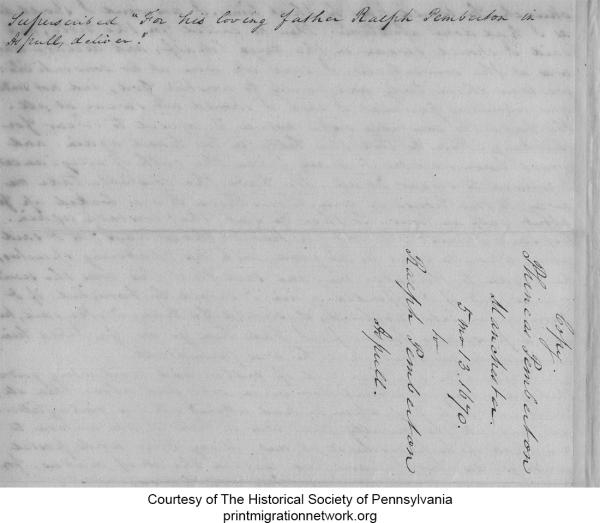 Superscribed "For his loving father Ralph Pemberton in
Aspull, deliver."
Copy.
Phineas Pemberton
Manchester.
5 mo 13. 1670.
to
Ralph Pemberton
Aspull.
Courtesy of The Historical Society of Pennsylvania
printmigrationnetwork.org